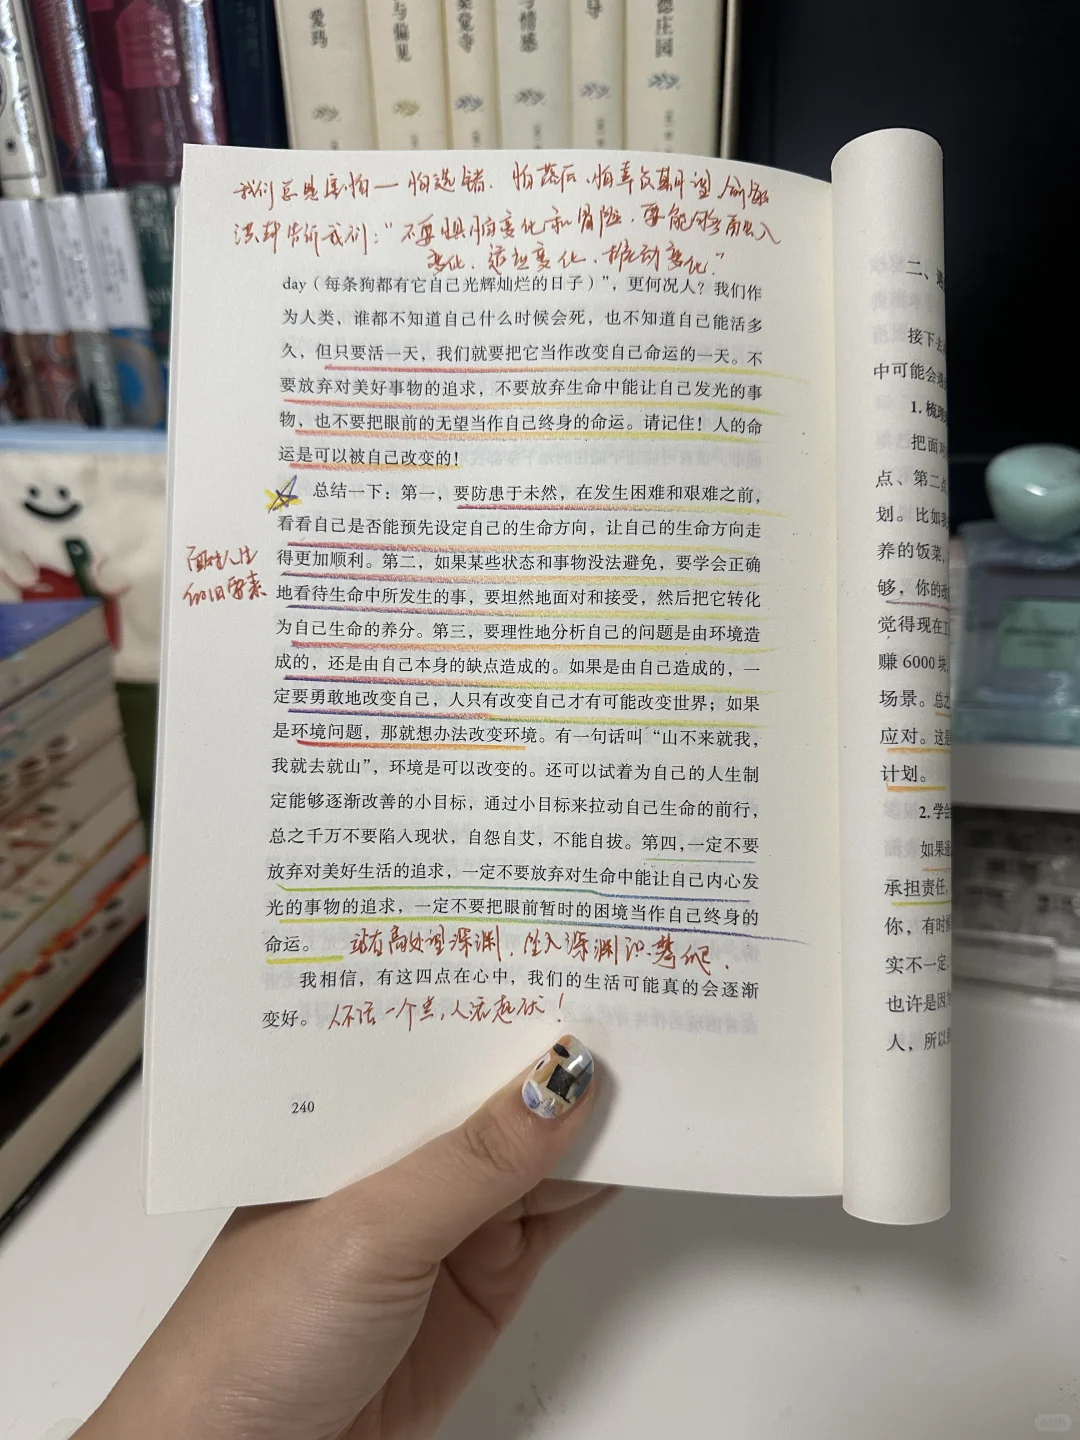 爱玛
与偏见
德庄园
我们总是害怕一怕选错、怕落后、怕辜负期望 俞敏
洪却告诉我们:“不要惧怕变化和冒险,要能够面对
变化、适应变化、推动变化。”
day(每条狗都有它自己光辉灿烂的日子)”,更何况人?我们作
为人类,谁都不知道自己什么时候会死,也不知道自己能活多
久,但只要活一天,我们就要把它当作改变自己命运的一天。不
要放弃对美好事物的追求,不要放弃生命中能让自己发光的事
物,也不要把眼前的无望当作自己终身的命运。请记住!人的命
运是可以被自己改变的!
总结一下:第一,要防患于未然,在发生困难和艰难之前,
看看自己是否能预先设定自己的生命方向,让自己的生命方向走
得更加顺利。第二,如果某些状态和事物没法避免,要学会正确
地看待生命中所发生的事,要坦然地面对和接受,然后把它转化
为自己生命的养分。第三,要理性地分析自己的问题是由环境造
成的,还是由自己本身的缺点造成的。如果是由自己造成的,一
定要勇敢地改变自己,人只有改变自己才有可能改变世界;如果
是环境问题,那就想办法改变环境。有一句话叫“山不来就我,
我就去就山”,环境是可以改变的。还可以试着为自己的人生制
定能够逐渐改善的小目标,通过小目标来拉动自己生命的前行,
总之千万不要陷入现状,自怨自艾,不能自拔。第四,一定不要
放弃对美好生活的追求,一定不要放弃对生命中能让自己内心发
光的事物的追求,一定不要把眼前暂时的困境当作自己终身的
命运。
站在高处望深渊,坠入深渊识攀爬。
我相信,有这四点在心中,我们的生活可能真的会逐渐
变好。
人不活一个点,人活起伏!
面对人生
的四要素
240
二、
接下去
中可能会遇
1. 梳理
把面对
点、第二点
划。比如我
养的饭菜,
够,你的
觉得现在工
赚 6000 块
场景。总之
应对。这是
计划。
2. 学会
如果遇
承担责任。
你,有时候
实不一定。
也许是因为
人,所以